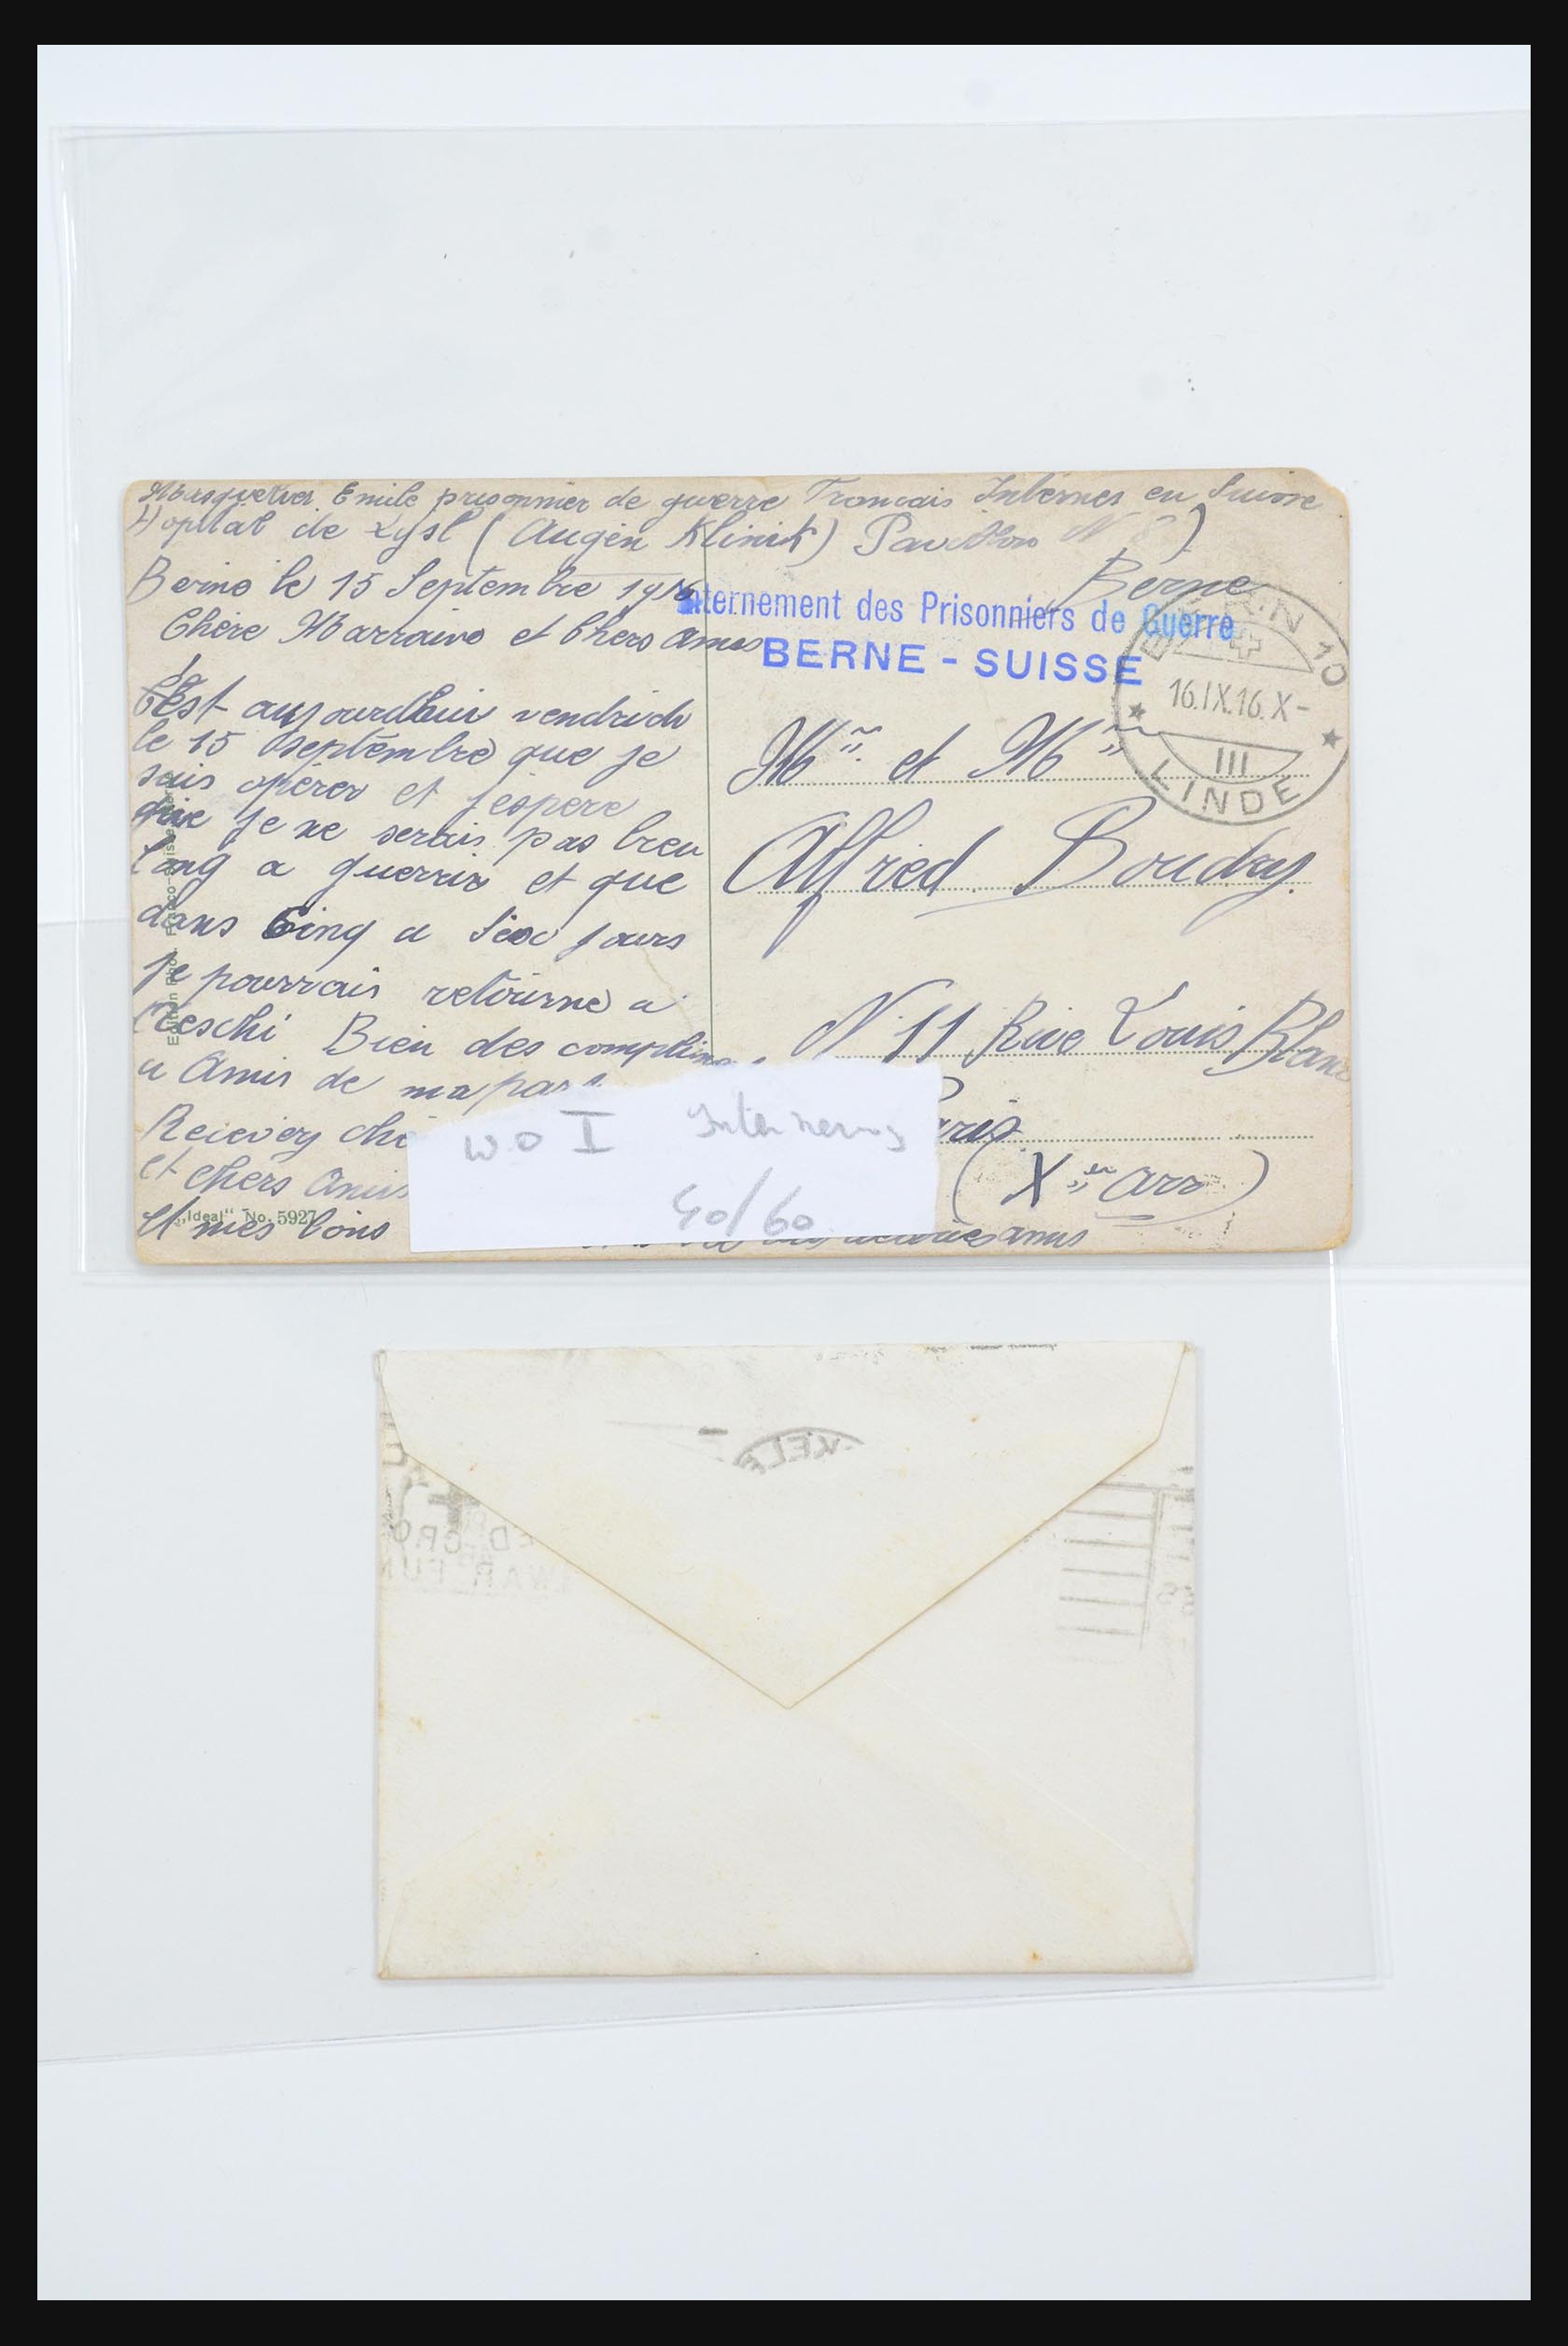 Emile prisonnier de guerre Francais Internes en Suisse
Hopital de Lysl (Augen Klinik) Pavillon N
Berne
Berne le 15 Septembre 1916
Chère Marraine et Chers amis
C'est aujourdhui vendredi
le 15 septembre que je
suis opérer et j'espère
que je ne serais pas bien
long a guerrir et que
dans Cinq a Six jours
je pourrais retourne a
Oeschi Bien des complim
a Amis de ma part
Recevez chè
et chers Amis
et mes bons
amis
„Ideal“ No. 5927
Internement des Prisonniers de Guerre
BERNE - SUISSE
BERN 10
16.IX.16.X-
III
LINDE
Mr et Mme
Alfred Boudry.
N 11 Rue Louis Blanc
aris
(X em arr)
WO I Internering
40/60
KEL
RED CRO
WAR FUN